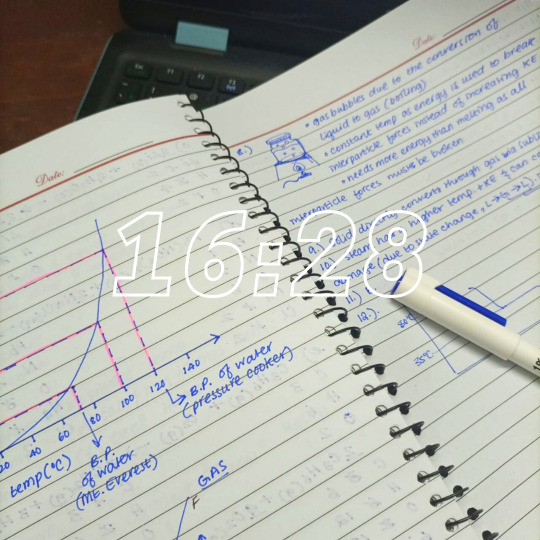 Date:
Date:
• gas bubbles due to the conversion of
liquid to gas (boiling)
• constant temp as energy is used to break
interparticle forces instead of increasing KE
• needs more energy than melting as all
interparticle forces must be broken
8.)
9.) Solid directly converts through gas via
10.) steam has higher temp + KE & can
damage (due to state change, L→G→L).
11.)
12.)
16:28
20 40 60 80 100 120 140
temp (°C)
B.P. of water
(pressure cooker)
B.P.
of water
(Mt. Everest)
GAS
F
55°C